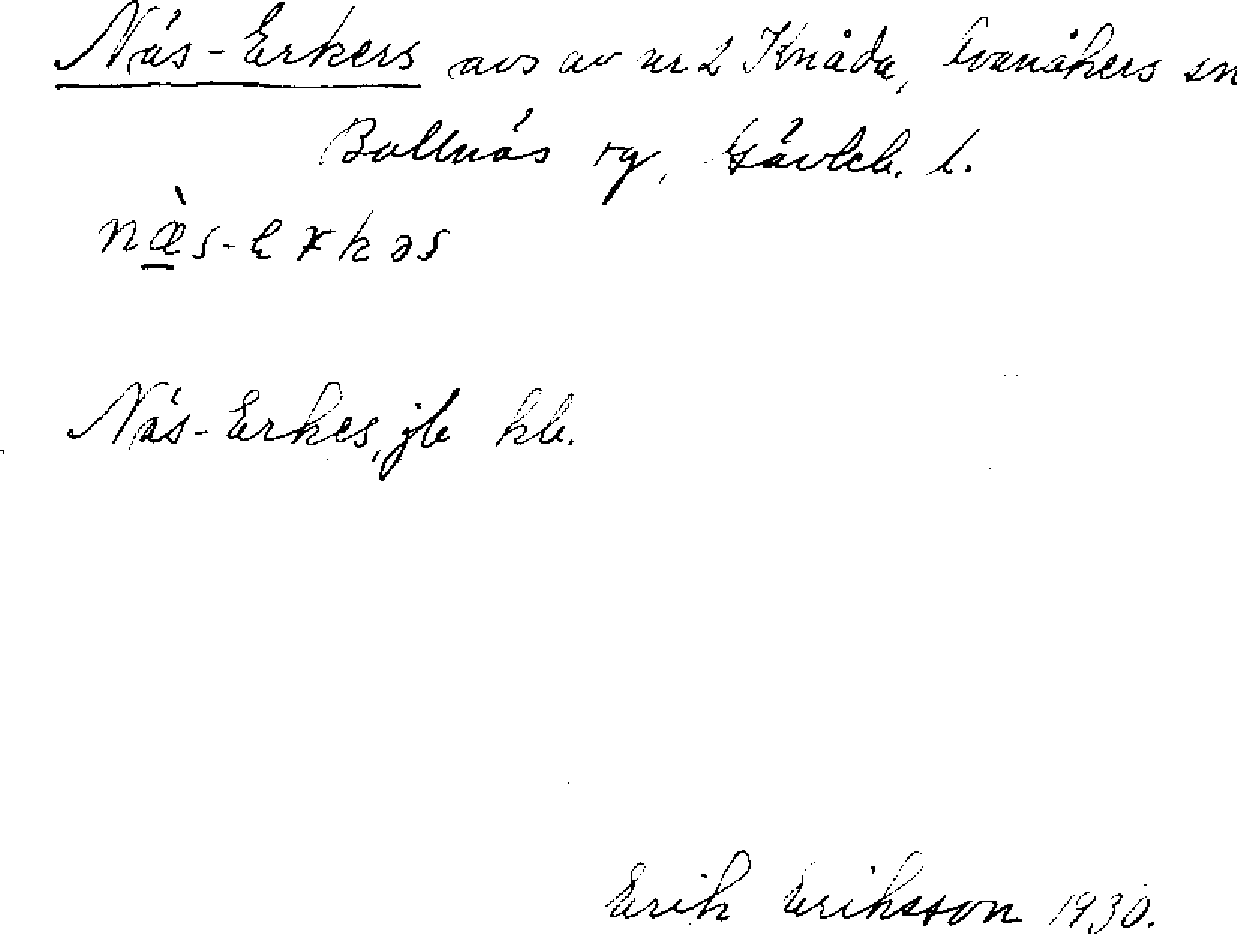 Näs-Erkers avs av nr 2 Knåda, Ovanåkers sn
Bollnäs tg, Gävleb. l.
næ̀s-erkəs
Näs-Erkes, jb kb.
Erik Eriksson 1930.